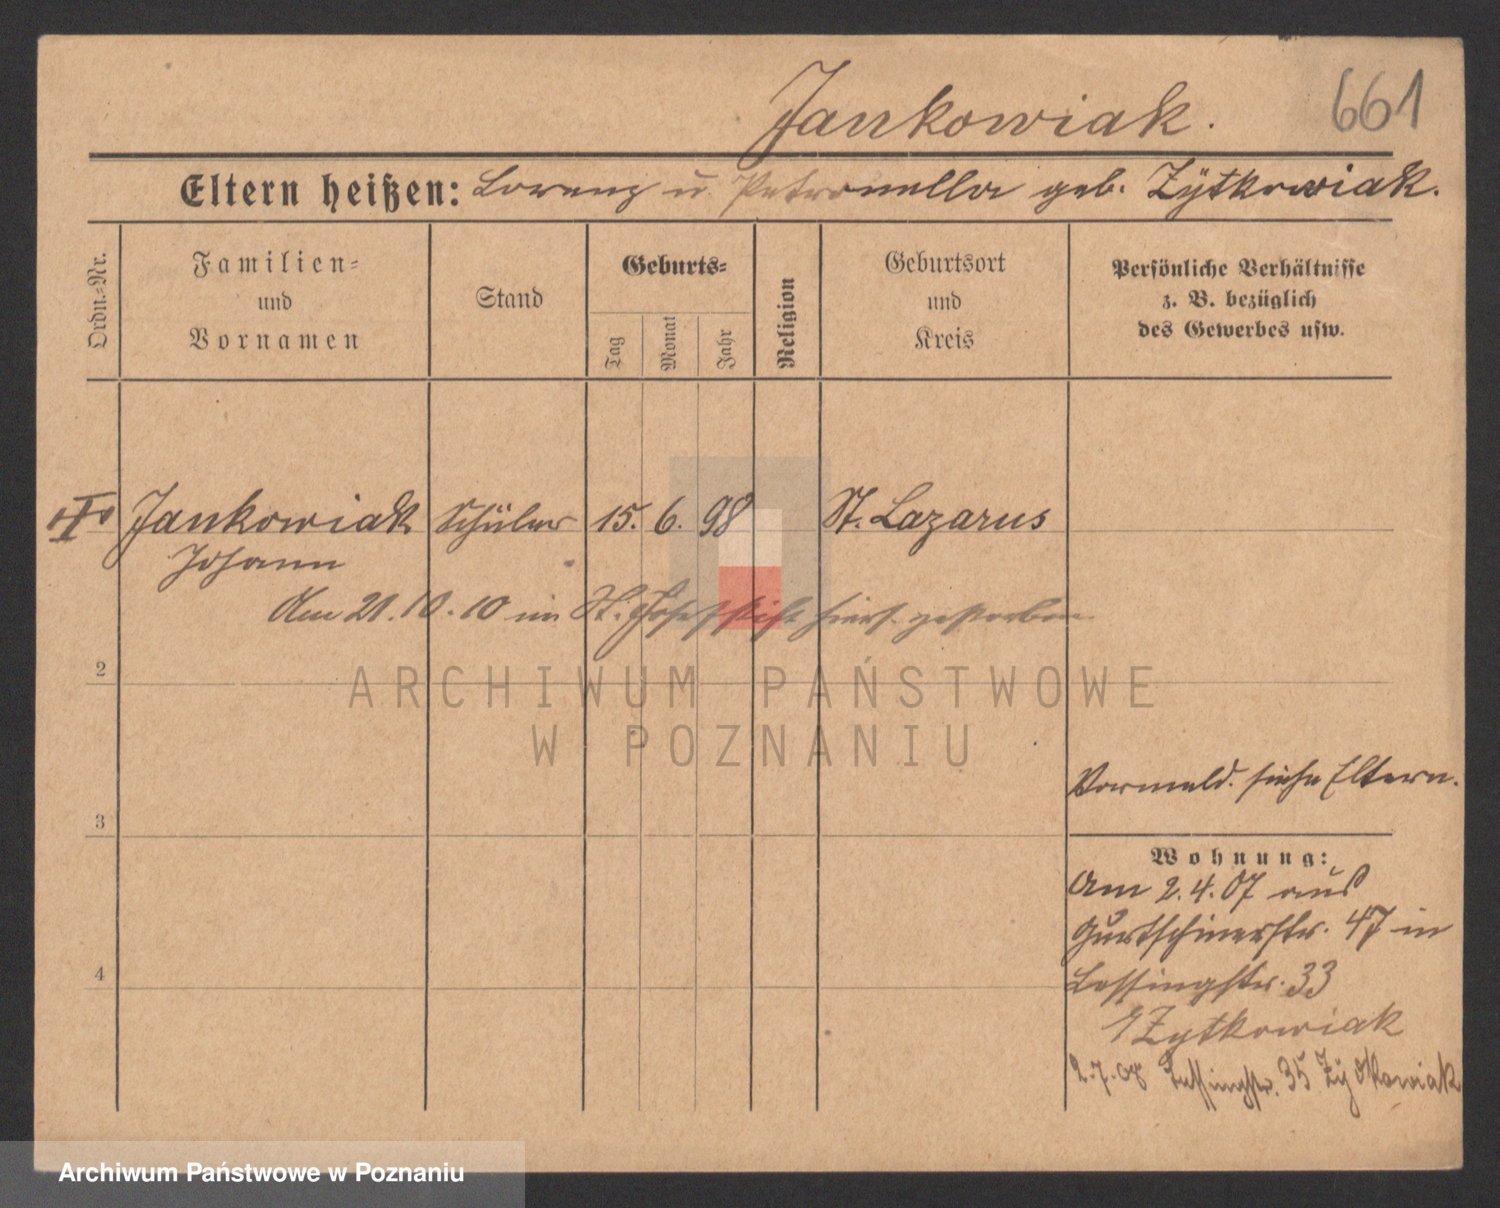 Jankowiak.
661
Eltern heißen: Lorenz u. Petronella geb. Zÿtkowiak.
Ordn.-Nr.
Familien-
und
Vornamen
Stand
Geburts-
Tag
Monat
Jahr
Religion
Geburtsort
und
Kreis
Persönliche Verhältnisse
z. B. bezüglich
des Gewerbes usw.
Jankowiak Schüler 15. 6. 98 St. Lazarus
Johann
Am 21.10.10 im St. Josefstift hiers. gestorben
2
ARCHIWUM PAŃSTWOWE
W POZNANIU
Vormeld. siehe Eltern.
3
Wohnung:
Am 2.4.07 aus
Gurtschinerstr. 47 in
Lessingstr. 33
4
Zytkowiak
2.7.08 Lessingstr. 35 Zytkowiak
Archiwum Państwowe w Poznaniu